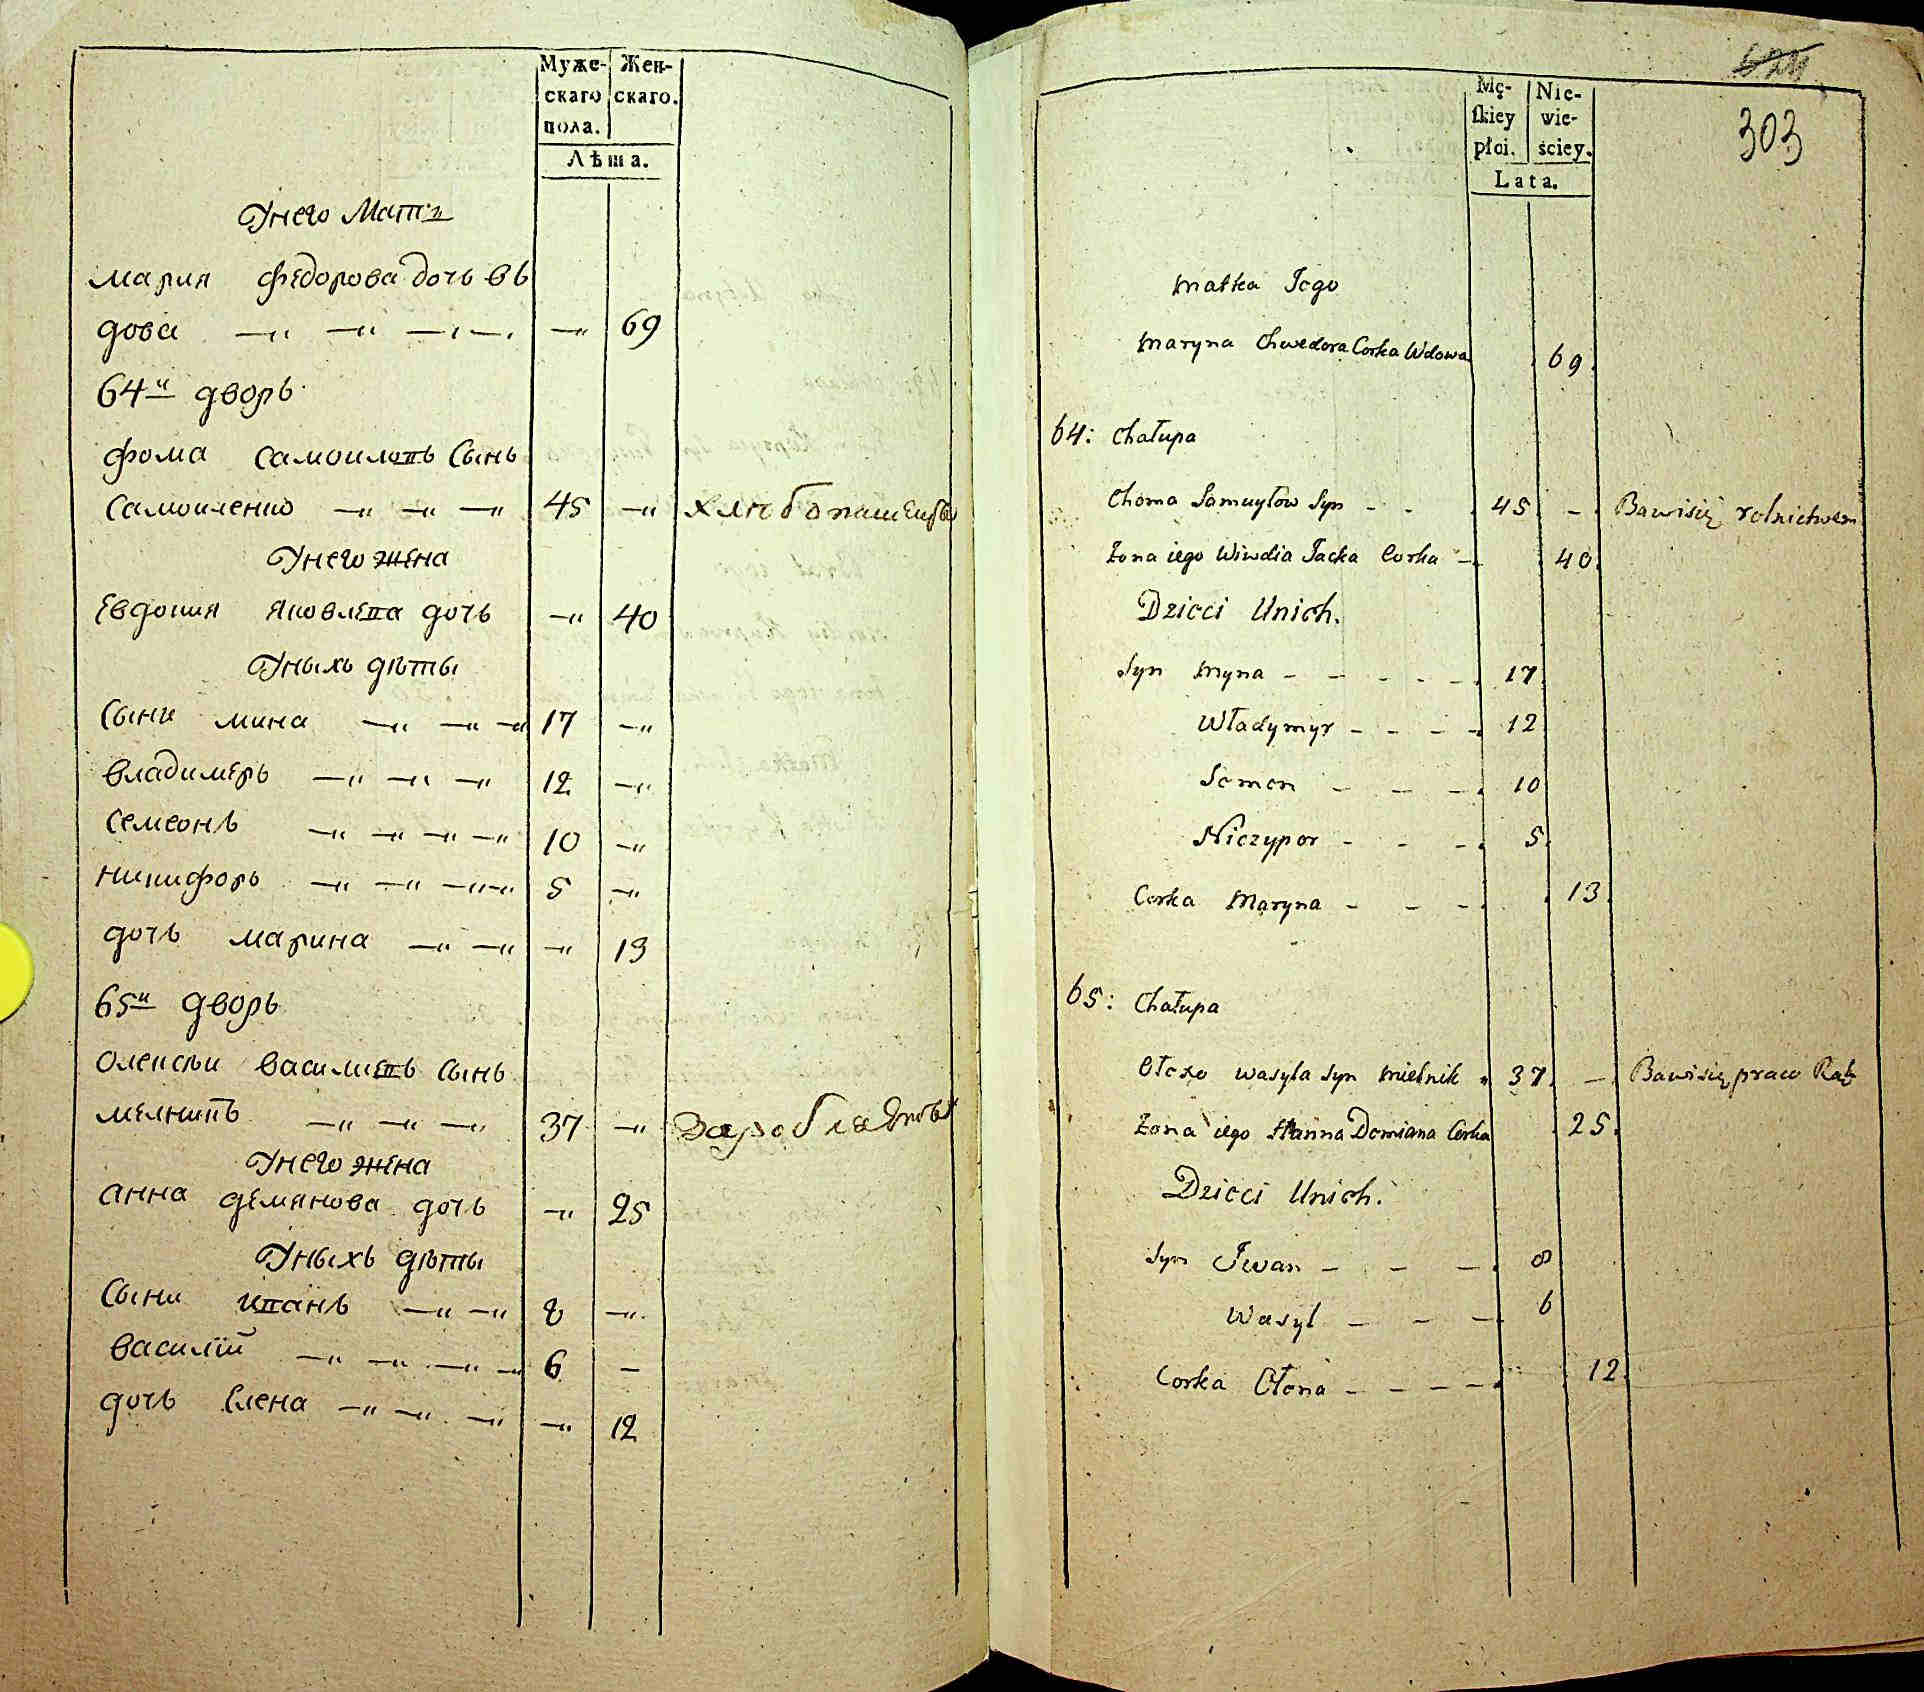 Муже- Жен-
скаго скаго.
пола.
Лѣта.
Унего Мати
мария федорова дочь въ
дова —„ —„ —„ —. —„ 69
64й дворъ
фома самоиловъ сынъ
самоиленко —„ —„ —„ 45 —„ хлѣбопашецъ
Унего жена
Евдокия яковлева дочь —„ 40
Уныхъ дѣты
сыни мина —„ —„ —„ 17 —„
владимеръ —„ —„ —„ 12 —„
семеонъ —„ —„ —„ —„ 10 —„
никифоръ —„ —„ —„—„ 5 —„
дочь марина —„ —„ —„ 13
65й дворъ
олексѣи василиевъ сынъ
мелникъ —„ —„ —„ 37 —„
Унего жена
анна демянова дочь —„ 25
Уныхъ дѣты
сыни иванъ —„ —„ 8 —„
василій —„ —„ —„ —„ 6 —
дочь Елена —„ —„ —„ —„ 12
303
Mę- Nie-
skiey wie-
płci. ściey.
Lata.
Matka Jego
Maryna Chwedora Corka Wdowa 69.
64: Chałupa
Choma Samuyłow Syn - - 45 - Bawi się rolnictwem
Żona iego Wiwdia Jacka Corka - 40.
Dzieci Unich.
Syn Myna - - - - - 17.
Władymyr - - - - 12
Semen - - - 10
Niczypor - - - 5.
Corka Maryna - - - 13.
65: Chałupa
Ołexo Wasyla Syn Mielnik 37. - Bawi się praco Rąk
Żona iego Hanna Demiana Corka 25.
Dzieci Unich.
Syn Iwan - - - 8
Wasyl - - - 6
Corka Ołena - - - - 12.